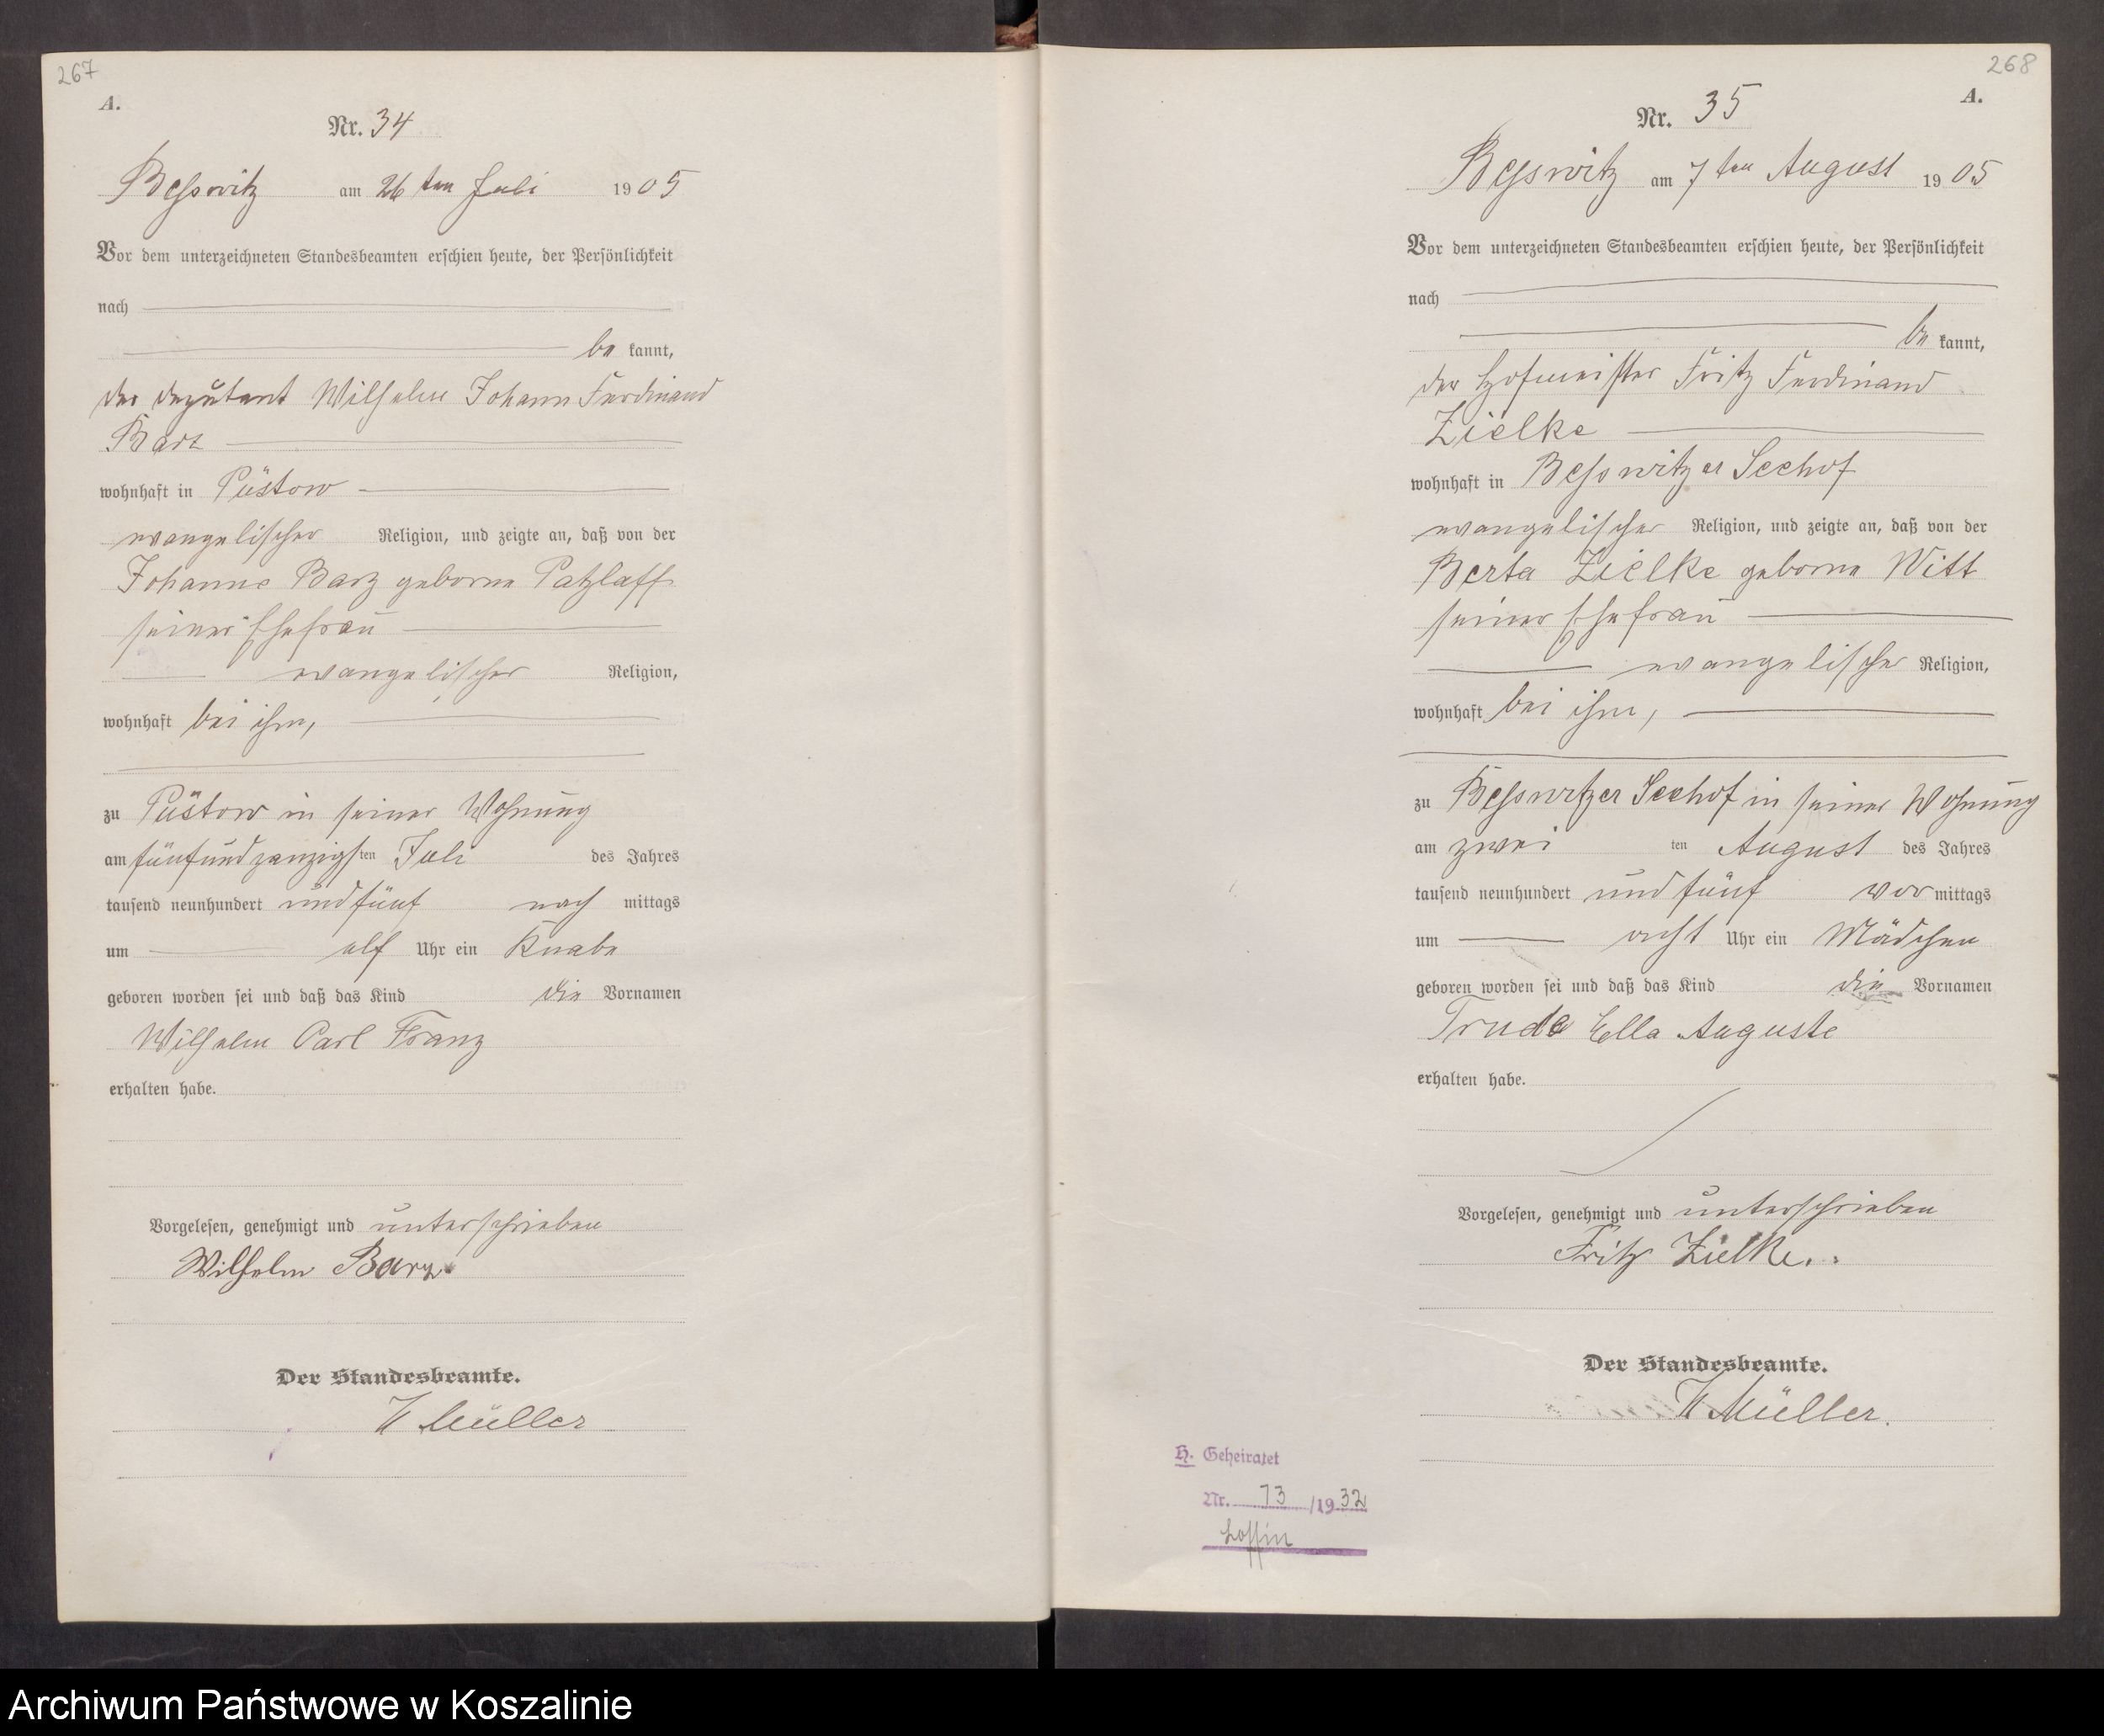 267
A.
Nr. 34
Beßwitz am 26 ten Juli 1905
Vor dem unterzeichneten Standesbeamten erschien heute, der Persönlichkeit
nach
be kannt,
der Deputant Wilhelm Johann Ferdinand
Barz
wohnhaft in Püstow
evangelischer Religion, und zeigte an, daß von der
Johanne Barz geborne Patzlaff
seiner Ehefrau
evangelischer Religion,
wohnhaft bei ihm,
zu Püstow in seiner Wohnung
am fünfundzwanzigsten Juli des Jahres
tausend neunhundert und fünf nach mittags
um elf Uhr ein Knabe
geboren worden sei und daß das Kind die Vornamen
Wilhelm Carl Franz
erhalten habe.
Vorgelesen, genehmigt und unterschrieben
Wilhelm Barz
Der Standesbeamte.
Müller
268
A.
Nr. 35
Beßwitz am 7 ten August 1905
Vor dem unterzeichneten Standesbeamten erschien heute, der Persönlichkeit
nach
be kannt,
der Hofmeister Fritz Ferdinand
Zielke
wohnhaft in Beßwitzer Seehof
evangelischer Religion, und zeigte an, daß von der
Berta Zielke geborne Witt
seiner Ehefrau
evangelischer Religion,
wohnhaft bei ihm,
zu Beßwitzer Seehof in seiner Wohnung
am zwei ten August des Jahres
tausend neunhundert und fünf vor mittags
um acht Uhr ein Mädchen
geboren worden sei und daß das Kind die Vornamen
Trude Ella Auguste
erhalten habe.
Vorgelesen, genehmigt und unterschrieben
Fritz Zielke.
Der Standesbeamte.
Müller.
H. Geheiratet
Nr. 13 /1932
Archiwum Państwowe w Koszalinie